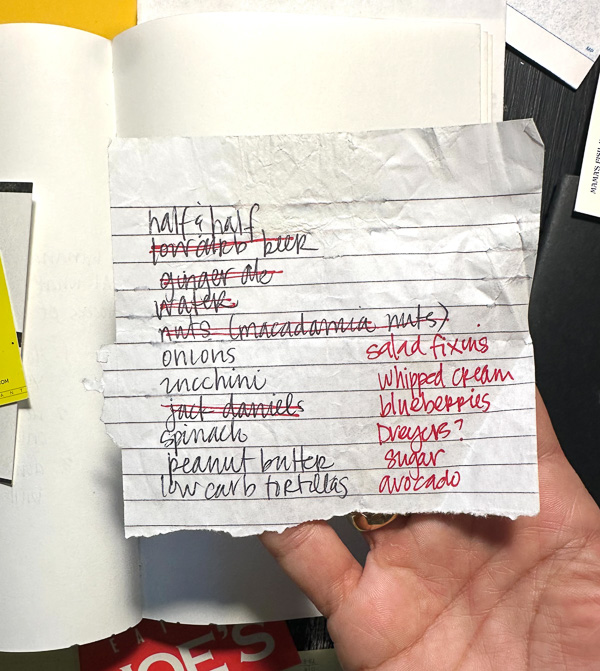 half & half
low carb beer
ginger ale
water
nuts (macadamia nuts)
onions
zucchini
jack daniels
spinach
peanut butter
low carb tortillas
salad fixins
whipped cream
blueberries
Dreyers?
sugar
avocado
.COM
OE'S